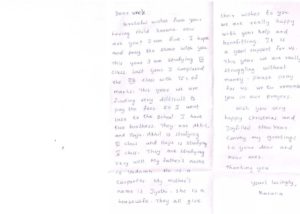 Dear uncle
Grateful wishes from your
loving child
are you? I am fine. I hope
and pray the same with you
this year I am studying
class last year I completed
the class with 75% of
marks. This year we are
finding very difficult to
pay the fees. So I went
late to the School I have
two brothers. They are
and
class and is studying
class. They are studying
very well My father's name
is He is a
carpenter My mother's
name is Jyothi. she is a
housewife. They all give
their wishes to you
we are really happy
with your help and
benefitting. It is
a good support for us.
This year we are really
struggling without
money. please pray
for us. we to remember
you in our prayers.
wish you very
happy christmas and
Joyful New Year.
Convey my greetings
to your dear and
near ones.
Thanking you
Yours lovingly,